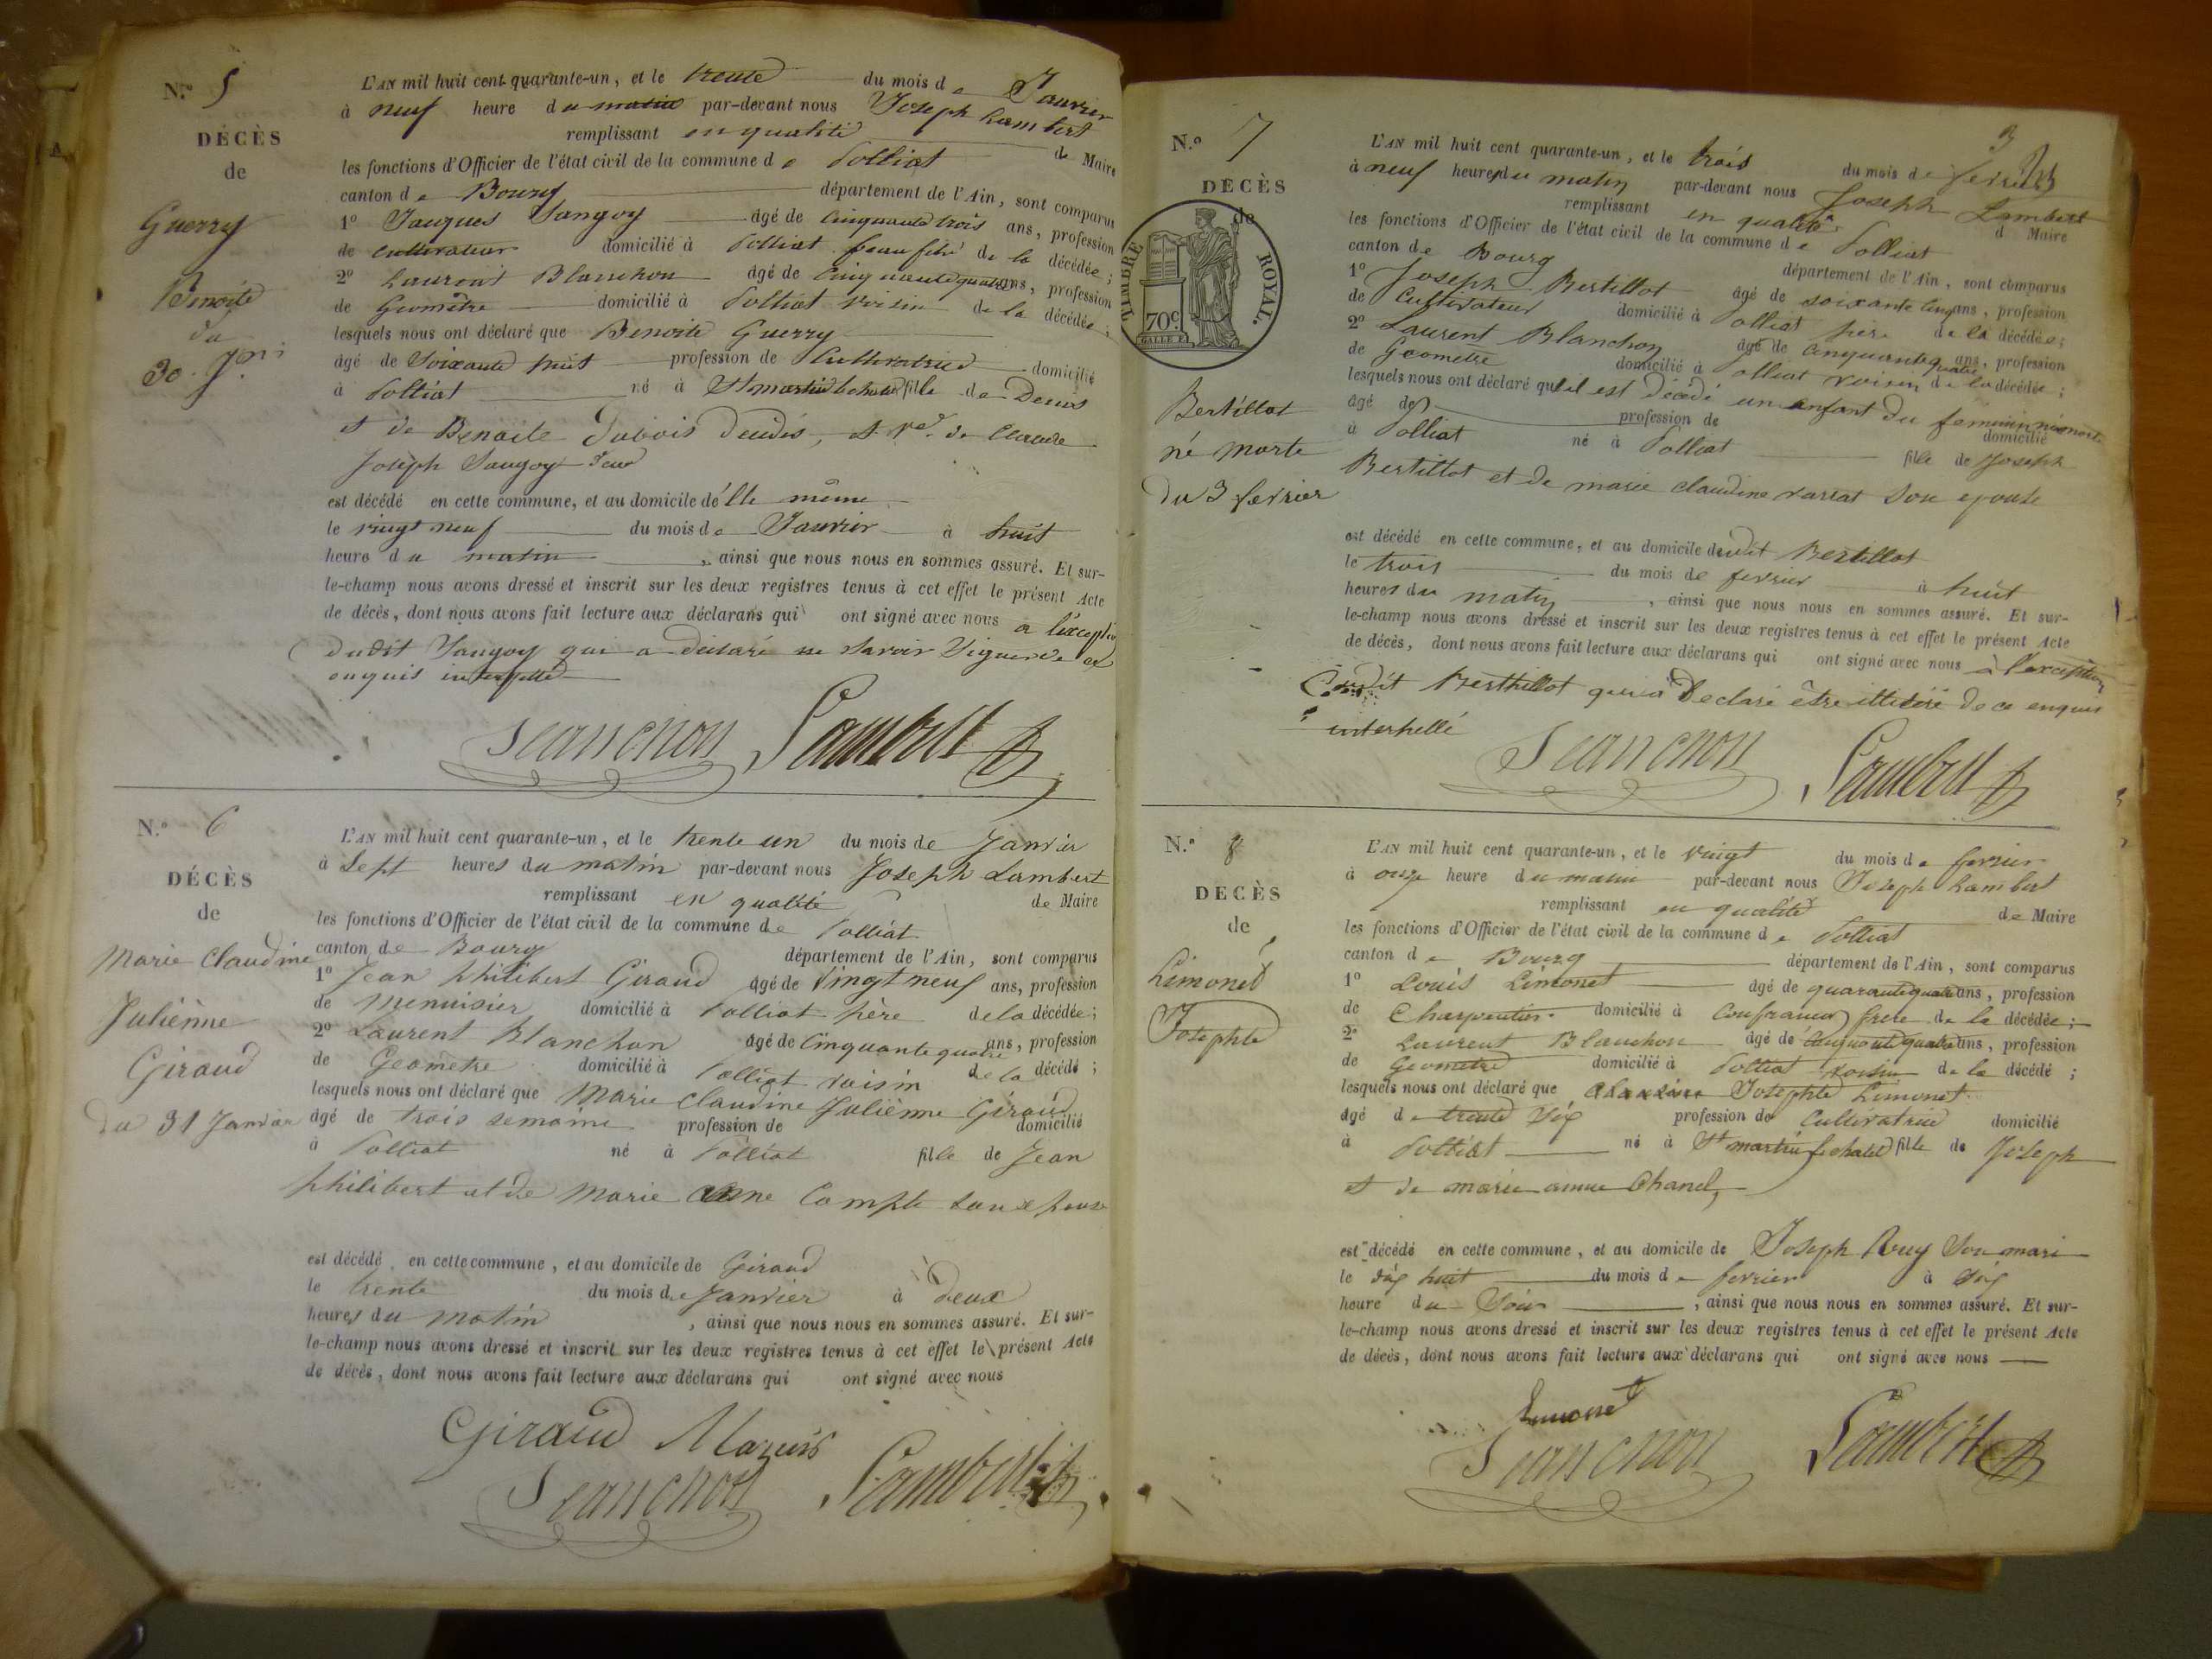 N.º 5
DÉCÈS
de
Guerry
Benoite
du
30 J.er
L'AN mil huit cent quarante-un, et le trente du mois de Janvier
à neuf heure du matin par-devant nous Joseph Lambert
remplissant en qualité de Maire
les fonctions d'Officier de l'état civil de la commune de Polliat
canton de Bourg département de l'Ain, sont comparus
1º Jacques Sangoy âgé de cinquante trois ans, profession
de cultivateur domicilié à Polliat beau frère de la décédée;
2º Laurent Blanchon âgé de cinquante quatre ans, profession
de Géomètre domicilié à Polliat voisin de la décédée;
lesquels nous ont déclaré que Benoite Guerry
âgé de soixante huit profession de Cultivatrice domicilié
à Polliat né à St martin le chatel fille de Denis
et de Benoite Dubois décédés, et Ve. de Claude
Joseph Sangoy
est décédé en cette commune, et au domicile d'Elle même
le vingt neuf du mois de Janvier à huit
heure du matin, ainsi que nous nous en sommes assuré. Et sur-
le-champ nous avons dressé et inscrit sur les deux registres tenus à cet effet le présent Acte
de décès, dont nous avons fait lecture aux déclarans qui ont signé avec nous a l'exception
dudit Sangoy qui a déclaré ne savoir signer de ce
enquis interpellé
Blanchon Lambert
N.º 6
DÉCÈS
de
Marie Claudine
Julienne
Giraud
du 31 Janvier
L'AN mil huit cent quarante-un, et le trente un du mois de Janvier
à Sept heures du matin par-devant nous Joseph Lambert
remplissant en qualité de Maire
les fonctions d'Officier de l'état civil de la commune de Polliat
canton de Bourg département de l'Ain, sont comparus
1º Jean Philibert Giraud âgé de Vingt neuf ans, profession
de menuisier domicilié à Polliat père de la décédée;
2º Laurent Blanchon âgé de Cinquante quatre ans, profession
de Géomètre domicilié à Polliat voisin de la décédé;
lesquels nous ont déclaré que Marie Claudine Julienne Giraud
âgé de trois semaine profession de domicilié
à Polliat né à Polliat fille de Jean
philibert et de Marie Anne Compte son epouse
est décédé en cette commune, et au domicile de Giraud
le trente du mois de Janvier à deux
heures du matin, ainsi que nous nous en sommes assuré. Et sur-
le-champ nous avons dressé et inscrit sur les deux registres tenus à cet effet le présent Acte
de décès, dont nous avons fait lecture aux déclarans qui ont signé avec nous
Giraud
Blanchon Lambert
3
N.º 7
DÉCÈS
de
TIMBRE ROYAL.
70c
Bertillot
né morte
du 3 fevrier
L'AN mil huit cent quarante-un, et le trois du mois de fevrier
à neuf heures du matin par-devant nous Joseph Lambert
remplissant en qualité d Maire
les fonctions d'Officier de l'état civil de la commune de Polliat
canton de Bourg département de l'Ain, sont comparus
1º Joseph Bertillot âgé de soixante cinq ans, profession
de Cultivateur domicilié à Polliat père de la décédée;
2º Laurent Blanchon âgé de cinquante quatre ans, profession
de Géomètre domicilié à Polliat voisin de la décédée;
lesquels nous ont déclaré qu'il est décédé un enfant du feminin né morte
âgé de profession de domicilié
à Polliat né à Polliat fille de Joseph
Bertillot et de marie claudine son epouse
est décédé en cette commune, et au domicile dudit Bertillot
le trois du mois de fevrier à huit
heures du matin, ainsi que nous nous en sommes assuré. Et sur-
le-champ nous avons dressé et inscrit sur les deux registres tenus à cet effet le présent Acte
de décès, dont nous avons fait lecture aux déclarans qui ont signé avec nous à l'exception
dudit Berthillot qui a Declaré être illitéré de ce enquis
interpellé
Blanchon Lambert
N.º 8
DECÈS
de
Limonet
Josephte
L'AN mil huit cent quarante-un, et le vingt du mois de fevrier
à onze heure du matin par-devant nous Joseph Lambert
remplissant en qualité de Maire
les fonctions d'Officier de l'état civil de la commune de Polliat
canton de Bourg département de l'Ain, sont comparus
1º Louis Limonet âgé de quarante quatre ans, profession
de Charpentier domicilié à Confrancon frere de la décédée;
2º Laurent Blanchon âgé de cinquante quatre ans, profession
de Géomètre domicilié à Polliat voisin de la décédé;
lesquels nous ont déclaré que Josephte Limonet
âgé de trente six profession de Cultivatrice domicilié
à Polliat né à St martin le chatel fille de Joseph
et de marie anne Chanel,
est décédé en cette commune, et au domicile de Joseph Son mari
le dix huit du mois de fevrier à six
heure du Soir, ainsi que nous nous en sommes assuré. Et sur-
le-champ nous avons dressé et inscrit sur les deux registres tenus à cet effet le présent Acte
de décès, dont nous avons fait lecture aux déclarans qui ont signé avec nous
Limonet
Blanchon Lambert